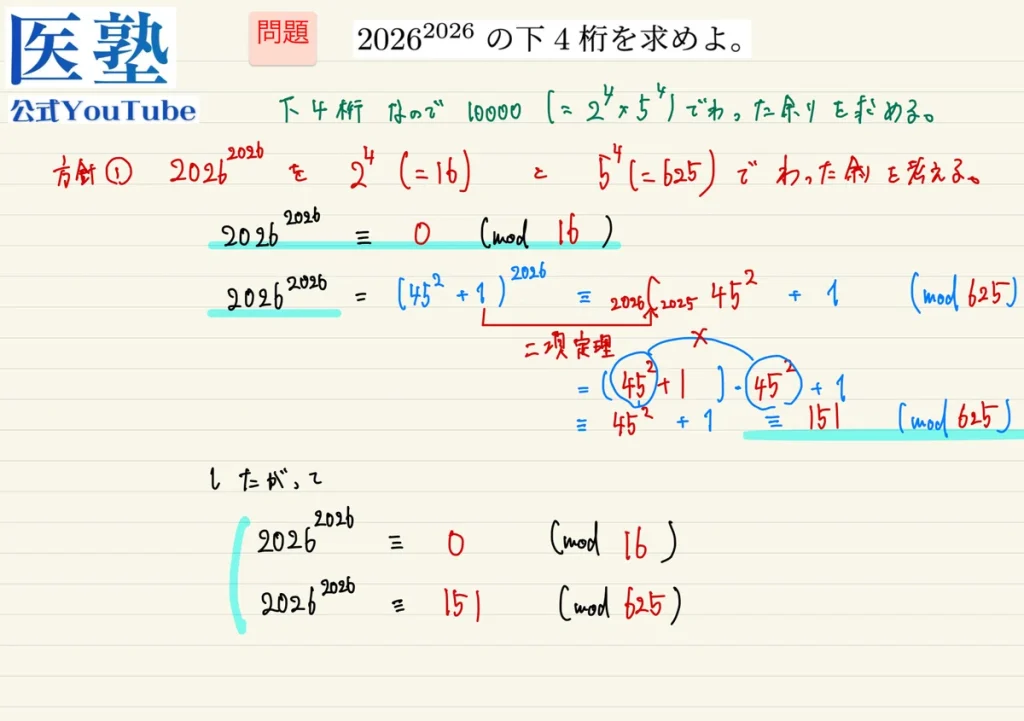 医塾
公式YouTube
問題
2026^2026 の下 4 桁を求めよ。
下4桁 なので 10000 (= 2^4 × 5^4) でわった余りを求める。
方針① 2026^2026 を 2^4 (=16) と 5^4 (=625) で わった余りを考える。
2026^2026 ≡ 0 (mod 16)
2026^2026 = (45^2 + 1)^2026 ≡ 2026C2025 45^2 + 1 (mod 625)
二項定理
×
= (45^2 + 1) · 45^2 + 1
≡ 45^2 + 1 ≡ 151 (mod 625)
したがって
2026^2026 ≡ 0 (mod 16)
2026^2026 ≡ 151 (mod 625)